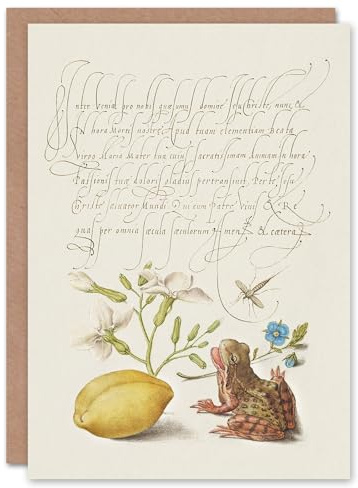 Inter Veniat pro nobis quæsumus domine Jesu Christe, nunc &
In hora Mortis nostræ, Apud tuam clementiam Beata
Virgo Maria Mater tua cuius sacratissimam Animam in hora
Passionis tuæ doloris gladius pertransivit. Per te Jesu
Christe Salvator Mundi. Qui cum Patre Vivis & Re
gnas per omnia sæcula sæculorum Amen. & cætera.